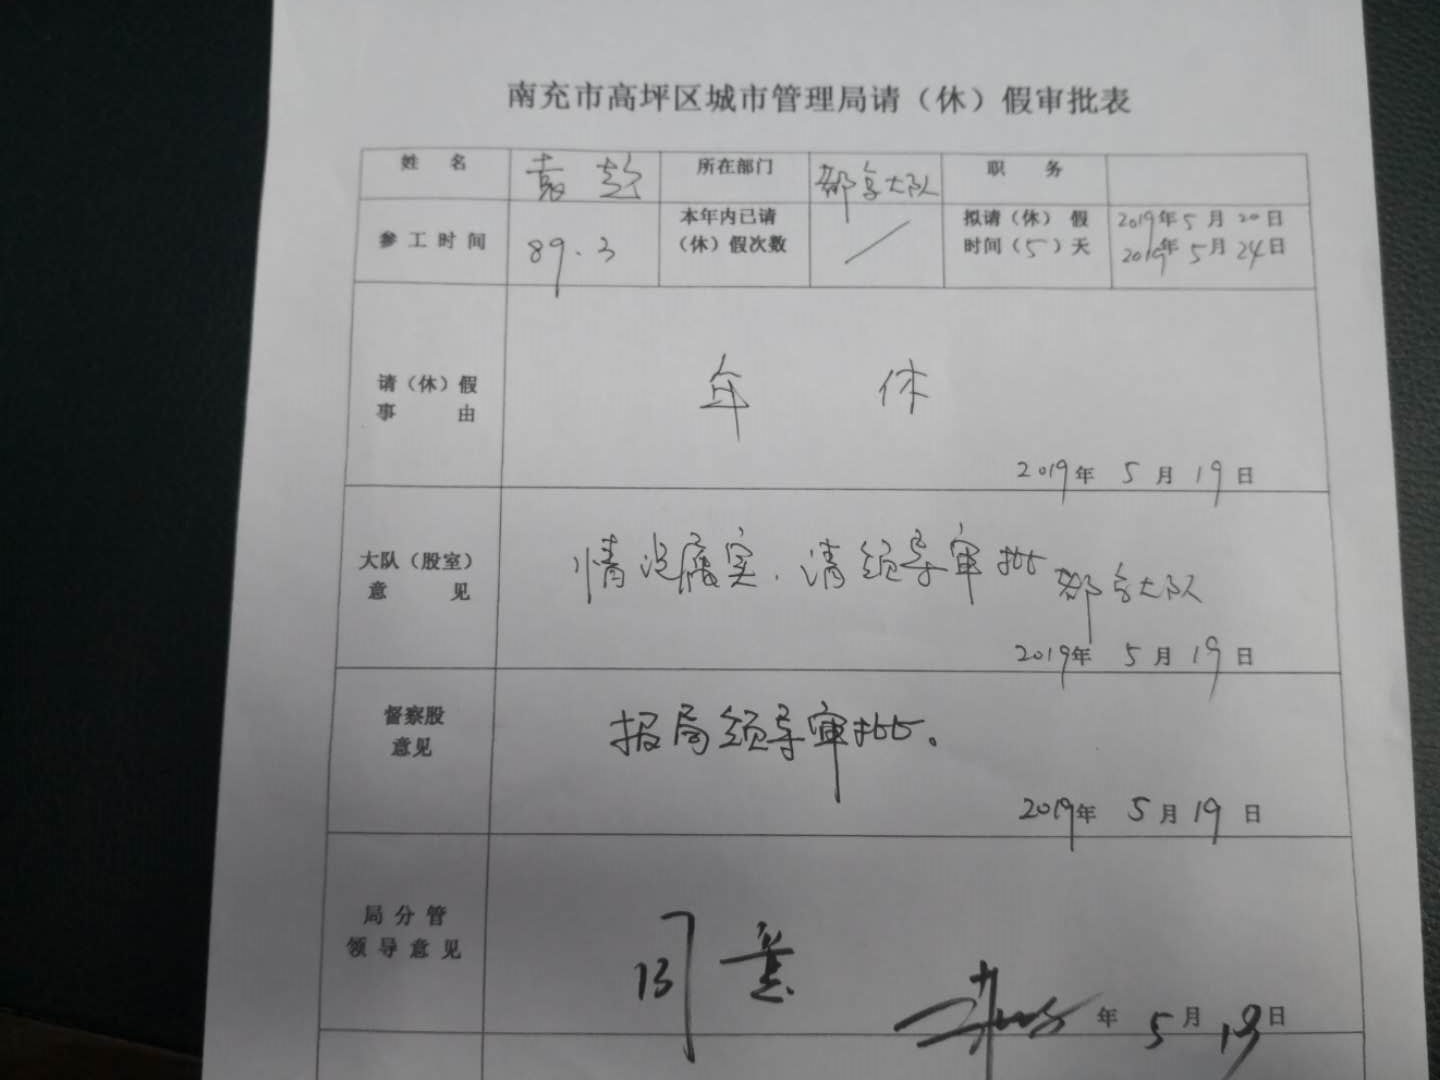 南充市高坪区城市管理局请（休）假审批表
姓 名 袁 所在部门 都京大队 职 务
参工时间 89.3 本年内已请（休）假次数 / 拟请（休）假时间（5）天 2019年5月20日
2019年5月24日
请（休）假事由
年 休
2019年 5月19日
大队（股室）意见
情况属实，请领导审批 都京大队
2019年 5月19日
督察股意见
报局领导审批。
2019年 5月19日
局分管领导意见
同意
年 5月19日